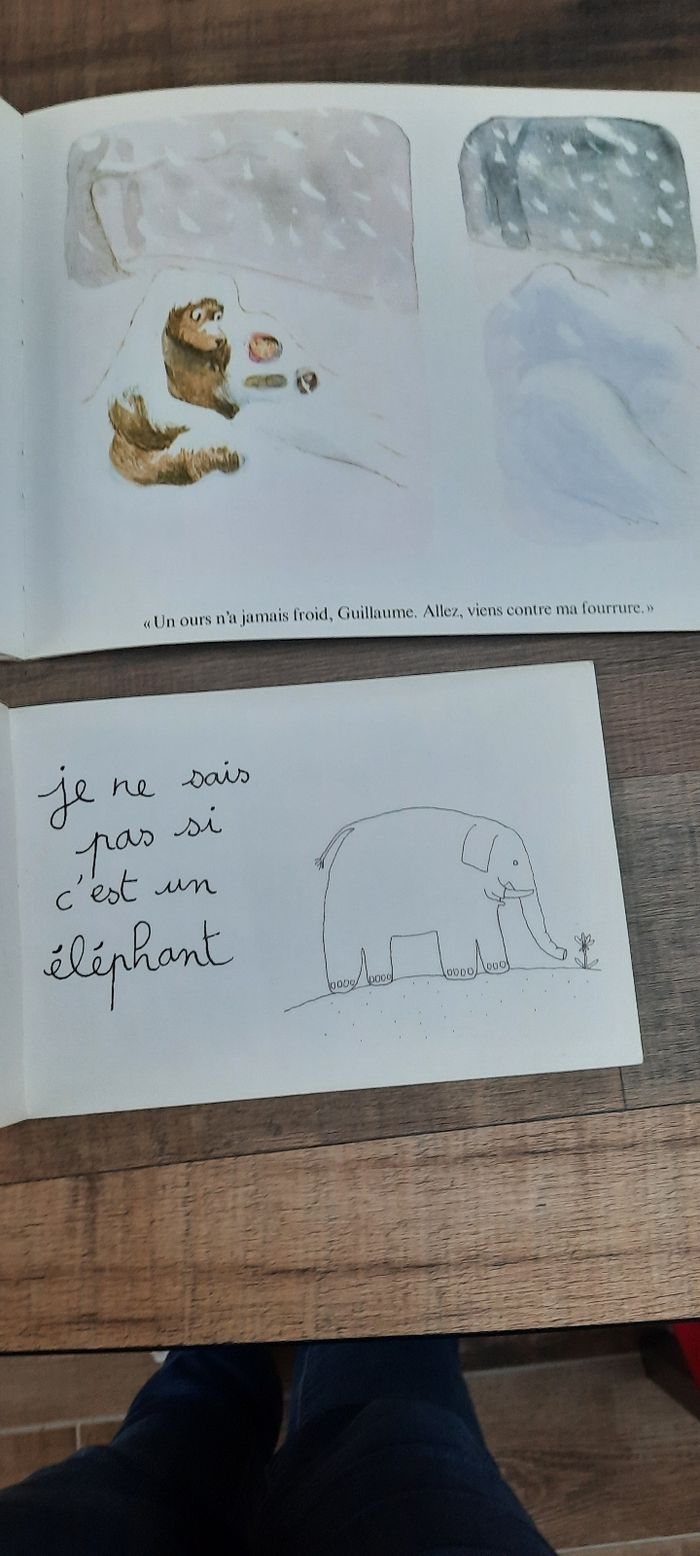 « Un ours n'a jamais froid, Guillaume. Allez, viens contre ma fourrure. »
je ne sais
pas si
c'est un
éléphant